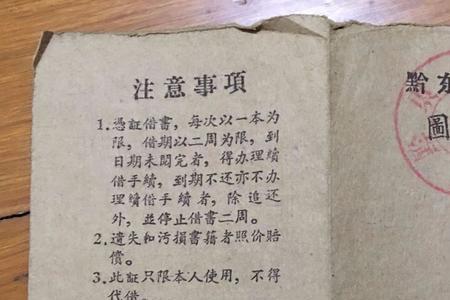 注意事項
1.憑証借書，每次以一本为
限，借期以二周为限，到
日期未閱完者，得办理續
借手續，到期不还亦不办
理續借手續者，除追还
外，並停止借書二周。
2.遺失和汚損書藉者照价賠
償。
3.此証只限本人使用，不得
代借。
黔东
圖